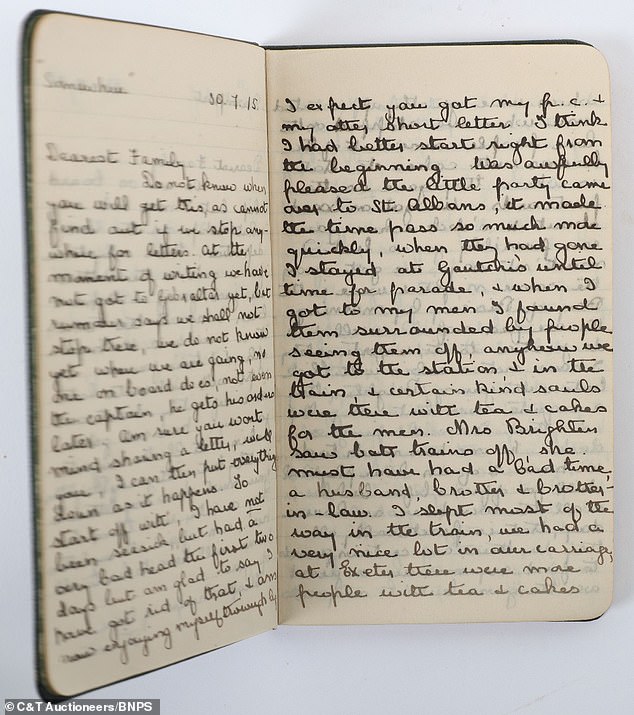 Somewhere
30.7.15
Dearest Family
Do not know when
you will get this, as cannot
find out if we stop any-
where for letters. At the
moment of writing we have
not got to Gibraltar yet, but
rumour says we shall not
stop there, we do not know
yet where we are going, no
one on board does, not even
the captain, he gets his orders
later. Am sure you wont
mind sharing a letter, will
you, I can then put everything
down as it happens. To
start off with, I have not
been seasick, but had a
very bad head the first two
days but am glad to say I
have got rid of that, & am
now enjoying myself thoroughly
I expect you got my p.c. &
my other short letter I think
I had better start right from
the beginning. Was awfully
pleased the little party came
over to St. Albans, it made
the time pass so much more
quickly, when they had gone
I stayed at Gautchis until
time for parade, & when I
got to my men I found
them surrounded by people
seeing them off, anyhow we
got to the station & in the
train, & certain kind souls
were there with tea & cakes
for the men. Mrs Brighten
saw both trains off, she
must have had a bad time,
a husband, brother & brother-
in-law. I slept most of the
way in the train, we had a
very nice lot in our carriage,
at Exeter there were more
people with tea & cakes
© C&T Auctioneers/BNPS